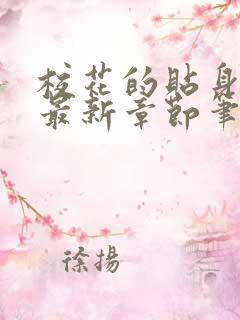 校花的貼身
最新章節筆
徐揚